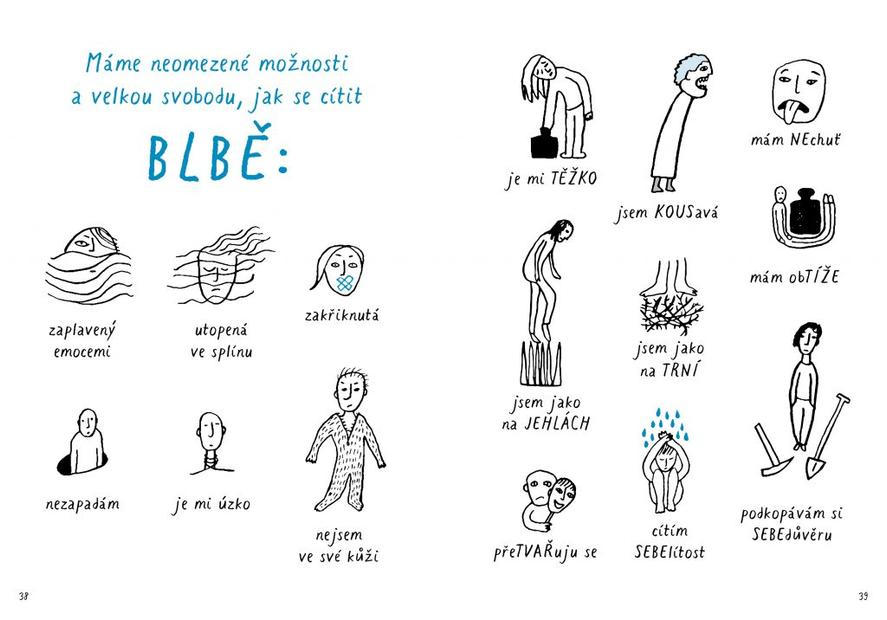 Máme neomezené možnosti
a velkou svobodu, jak se cítit
BLBĚ:
zaplavený
emocemi
utopená
ve splínu
zakřiknutá
nezapadám
je mi úzko
nejsem
ve své kůži
38
je mi TĚŽKO
jsem KOUSavá
mám NEchuť
mám obTÍŽE
jsem jako
na JEHLÁCH
jsem jako
na TRNÍ
přeTVAŘuju se
cítím
SEBElítost
podkopávám si
SEBEdůvěru
39